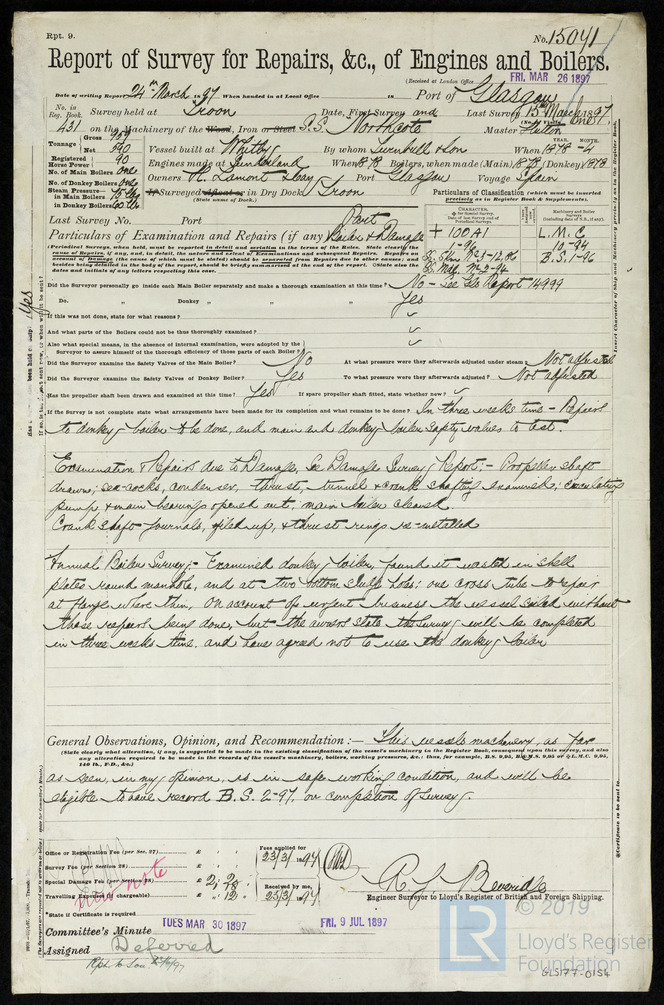 Rpt. 9.
No. 15041
Report of Survey for Repairs, &c., of Engines and Boilers.
(Received at London Office FRI. MAR 26 1897
Date of writing Report 24th March 1897 When handed in at Local Office 18 Port of Glasgow
No. in Reg. Book. Survey held at Troon Date, First Survey and Last Survey 15th March 1897
431 on the Machinery of the Wood, Iron or Steel S.S. Northcote Master
Tonnage Gross Net 590 Vessel built at Whitby By whom Turnbull & Son When 1878 - 4
YEAR. MONTH.
Registered Horse Power 90 Engines made at Sunderland When 1878 Boilers, when made (Main) 1878 (Donkey) 1878
No. of Main Boilers one Owners Port Glasgow Voyage Spain
No. of Donkey Boilers one
Steam Pressure in Main Boilers 75 lbs If Surveyed Afloat or in Dry Dock Troon
in Donkey Boilers 60 lbs (State name of Dock.)
Particulars of Classification (which must be inserted precisely as in Register Book & Supplements).
Last Survey No. Port
Particulars of Examination and Repairs (if any) Part Boiler & Damage
+ 100A1 L.M.C.
1-96 10-94
B.S. 1-96
Did the Surveyor personally go inside each Main Boiler separately and make a thorough examination at this time? No - See Gls Report 14999
Do. " Donkey " " " " Yes
If this was not done, state for what reasons?
And what parts of the Boilers could not be thus thoroughly examined?
Also what special means, in the absence of internal examination, were adopted by the
Surveyor to assure himself of the thorough efficiency of those parts of each Boiler?
Did the Surveyor examine the Safety Valves of the Main Boiler? No At what pressure were they afterwards adjusted under steam Not adjusted
Did the Surveyor examine the Safety Valves of Donkey Boiler? Yes To what pressure were they afterwards adjusted? Not adjusted
Has the propeller shaft been drawn and examined at this time? Yes If spare propeller shaft fitted, state whether new?
If the Survey is not complete state what arrangements have been made for its completion and what remains to be done? In three weeks time - Repairs
to donkey boiler to be done, and main and donkey boiler safety valves to test.
Examination & Repairs due to Damage, See Damage Survey Report:- Propeller shaft
drawn; sea-cocks, condenser, thrust, tunnel & crank shafting examined; circulating
pump & main bearings opened out, main boiler cleaned
Crank shaft journals, filed up, & thrust rings re-metalled
Annual Boiler Survey:- Examined donkey boiler, found it wasted in shell
plates round manhole, and at two bottom sludge holes: one cross tube to repair
at flange where thin. On account of urgent business the vessel sailed without
these repairs being done, but the owners state the survey will be completed
in three weeks time, and have agreed not to use the donkey boiler
General Observations, Opinion, and Recommendation:— This vessels machinery, as far
(State clearly what alteration, if any, is suggested to be made in the existing classification of the vessel's machinery in the Register Book, consequent upon this survey, and also
any alteration required to be made in the records of the vessel's machinery, boilers, working pressures, &c.: thus, for example, B.S. 9,95, B.&M.S. 9,95 or L.M.C. 9,95,
160 lb., F.D., &c.)
as seen, in my opinion, is in safe working condition, and will be
eligible to have record B.S. 2-97. on completion of survey.
Office or Registration Fee (per Sec. 27) £ : :
Survey Fee (per Section 28) £ : :
Special Damage Fee (per Section 28) £ 2 : 2 :
Travelling Expenses (if chargeable) £
Fees applied for 23/3/1897
Received by me, 25/3/1897
R. J. Beveridge
Engineer Surveyor to Lloyd's Register of British and Foreign Shipping.
*State if Certificate is required
Committee's Minute TUES MAR 30 1897 FRI. 9 JUL 1897
Assigned Deferred
© 2019
LR
Lloyd's Register
Foundation
GLS177-0154